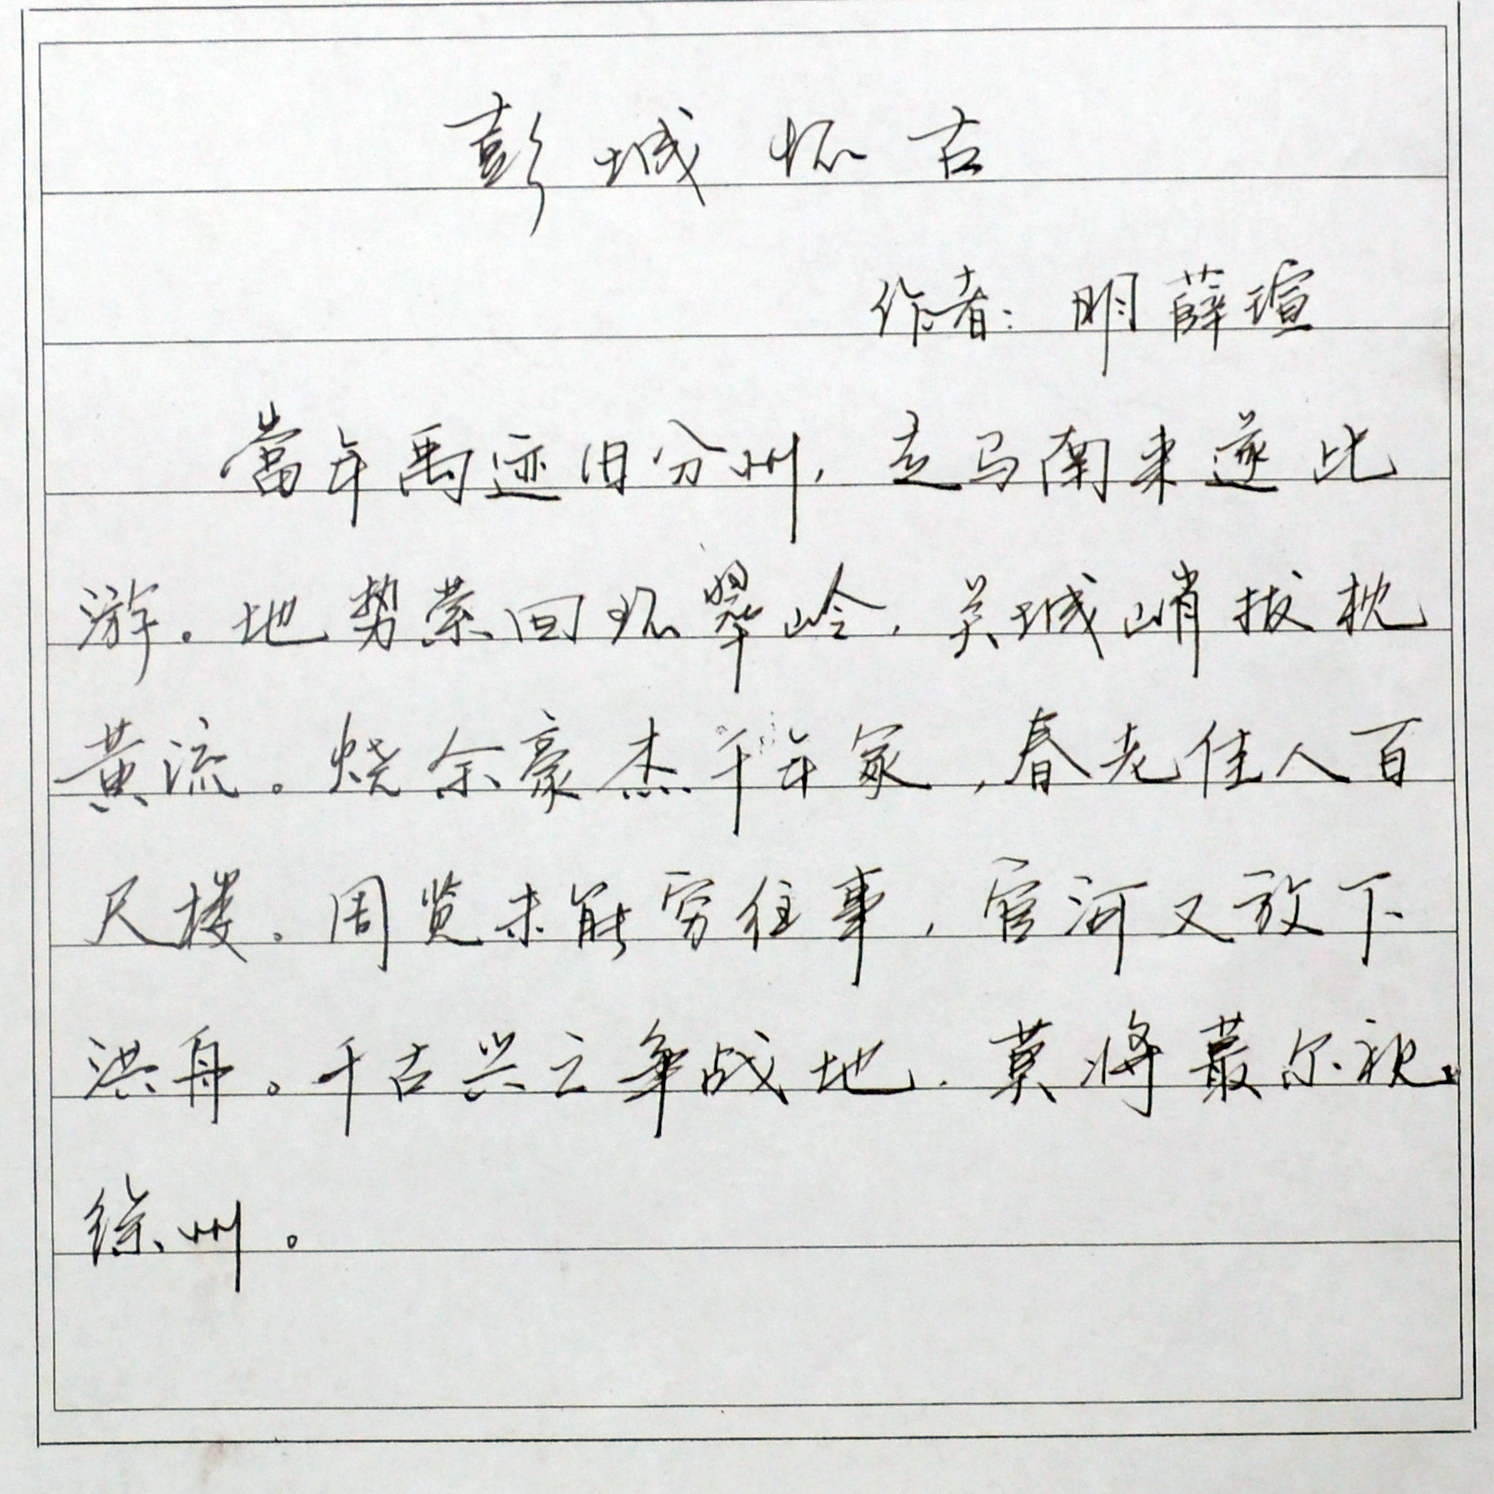 彭城怀古
作者：明薛瑄
當年禹迹旧分州，走马南来遂此
游。地势萦回环翠岭，关城峭拔枕
黄流。烧余豪杰千年冢，春老佳人百
尺楼。周览未能穷往事，官河又放下
洪舟。千古兴亡争战地，莫将蕞尔视
徐州。